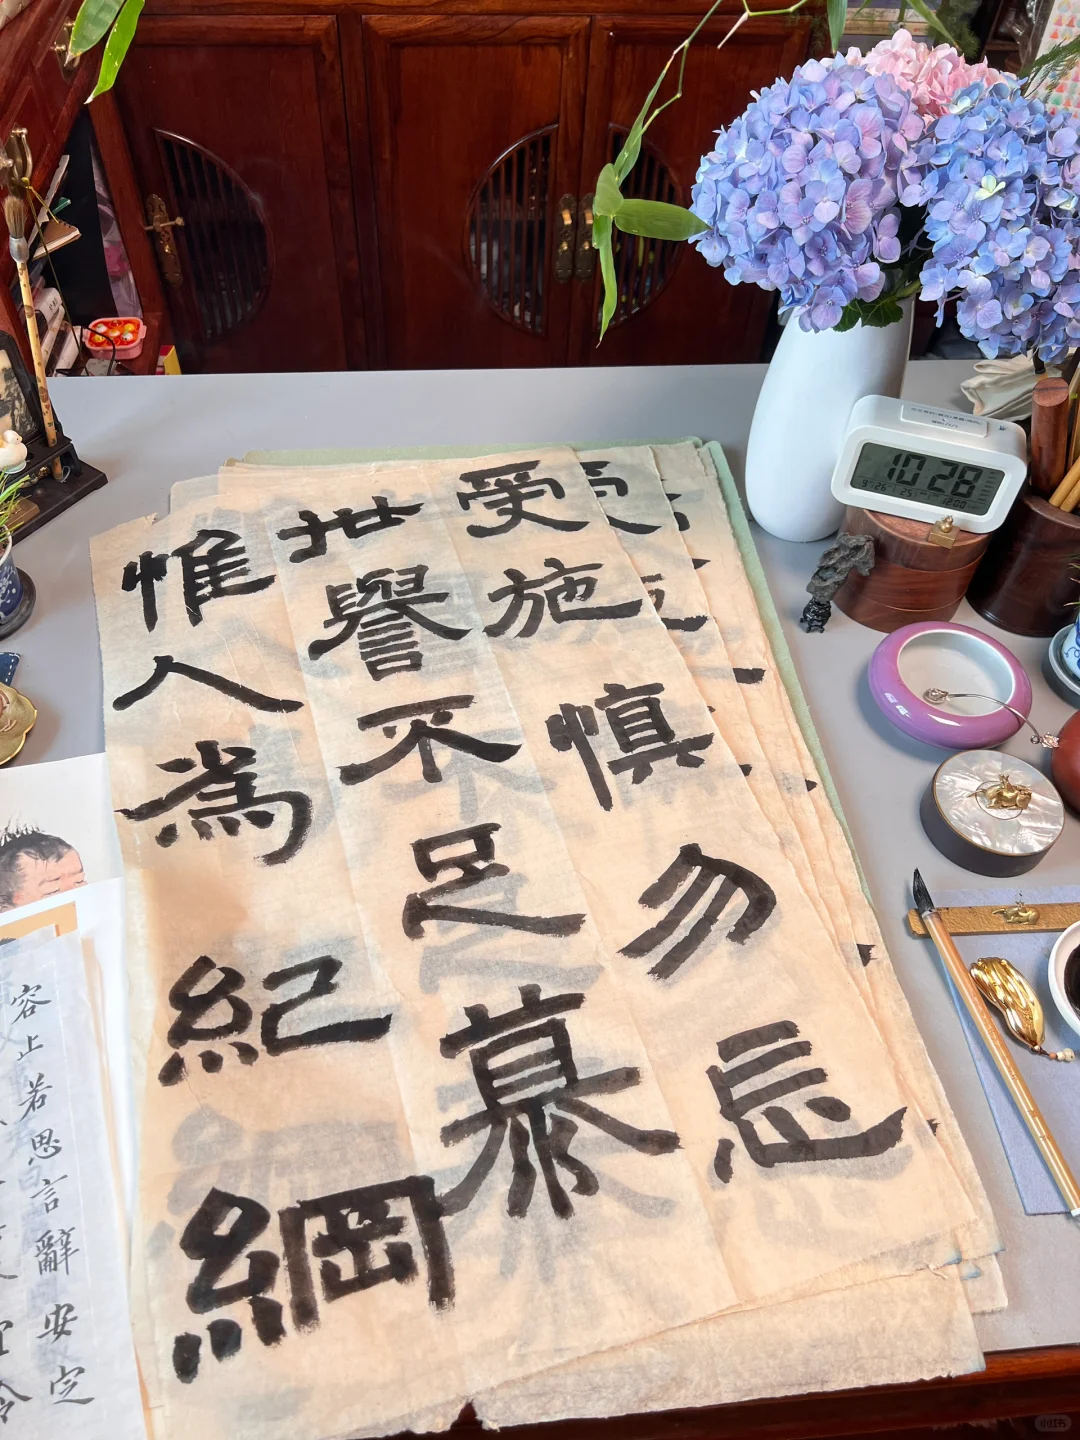 受施慎勿忘
世譽不足慕
惟人為紀綱
容止若思言辭安定
宜令
10:28